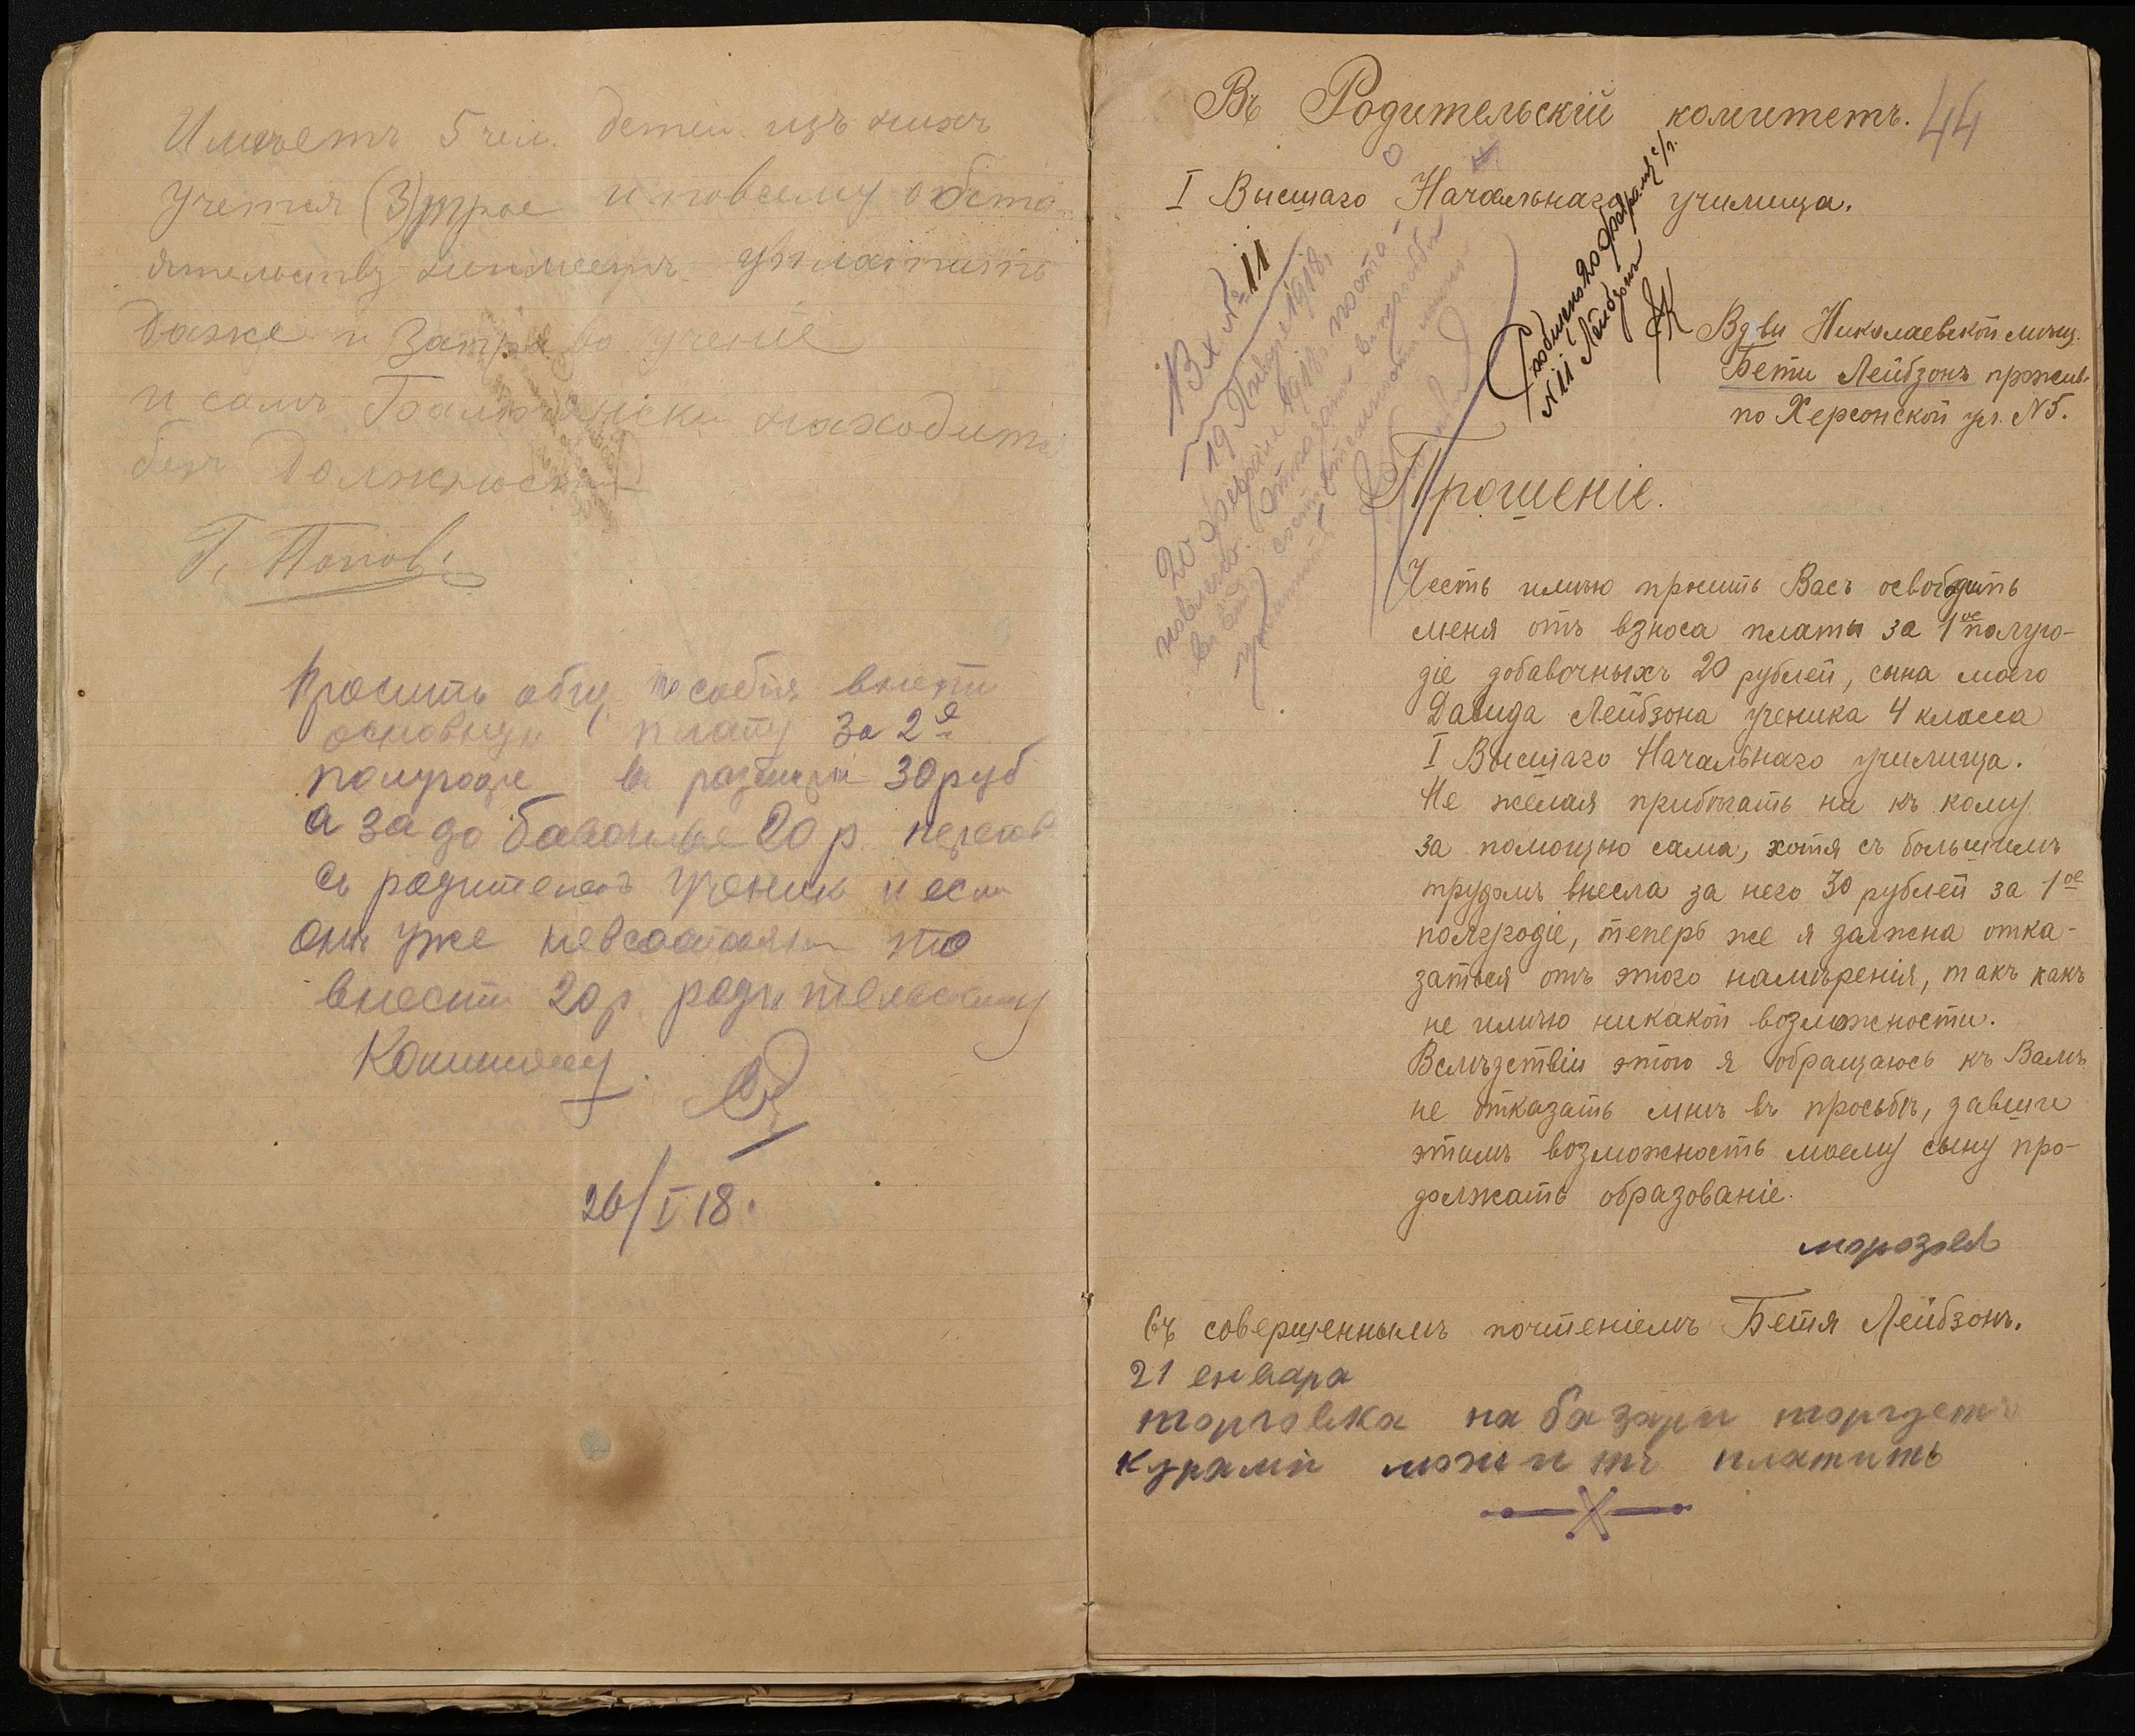 Имѣетъ 5 чел. детей изъ них
учется (3) трое и повсему обсто
ятельству неимеетъ уплатить
Даже и За право учение
и самъ находится
безъ Должности
Г. Попов.
Просить общ. пособія внести
основную плату за 2е
полугодіе въ размѣрѣ 30 руб
а за добавочные 20 р.
съ родителей ученик и если
они уже невсостояни то
внести 20 р. родительскому
Комитету.
26/I 18.
Въ Родительскій комитетъ. 44
I Высшаго Начальнаго училища.
Вх. № 11
19 Января 1918 г.
20 февраля 1918 г. поста-
новлено: Отказать въ просьбѣ
Сообщено 20 февраля с/г.
№ 11 Лейбзонъ
Вдвы Николаевской мѣщ.
Бети Лейбзонъ прожив.
по Херсонской ул. N 5.
Прошеніе.
Честь имѣю просить Васъ освободить
меня отъ взноса платы за 1ое полуго-
діе добавочныхъ 20 рублей, сына моего
Давида Лейбзона ученика 4 класса
I Высшаго Начальнаго училища.
Не желая прибѣгать ни къ кому
за помощью сама, хотя съ большимъ
трудомъ внесла за него 30 рублей за 1ое
полугодіе, теперь же я должна отка-
заться отъ этого намѣренія, такъ какъ
не имѣю никакой возможности.
Вслѣдствіи этого я обращаюсь къ Вамъ
не отказать мнѣ въ просьбѣ, давши
этимъ возможность моему сыну про-
должать образованіе.
морозов
Съ совершеннымъ почтеніемъ Бетя Лейбзонъ.
21 енвара
торговка на базари торгуетъ
курами можитъ платить